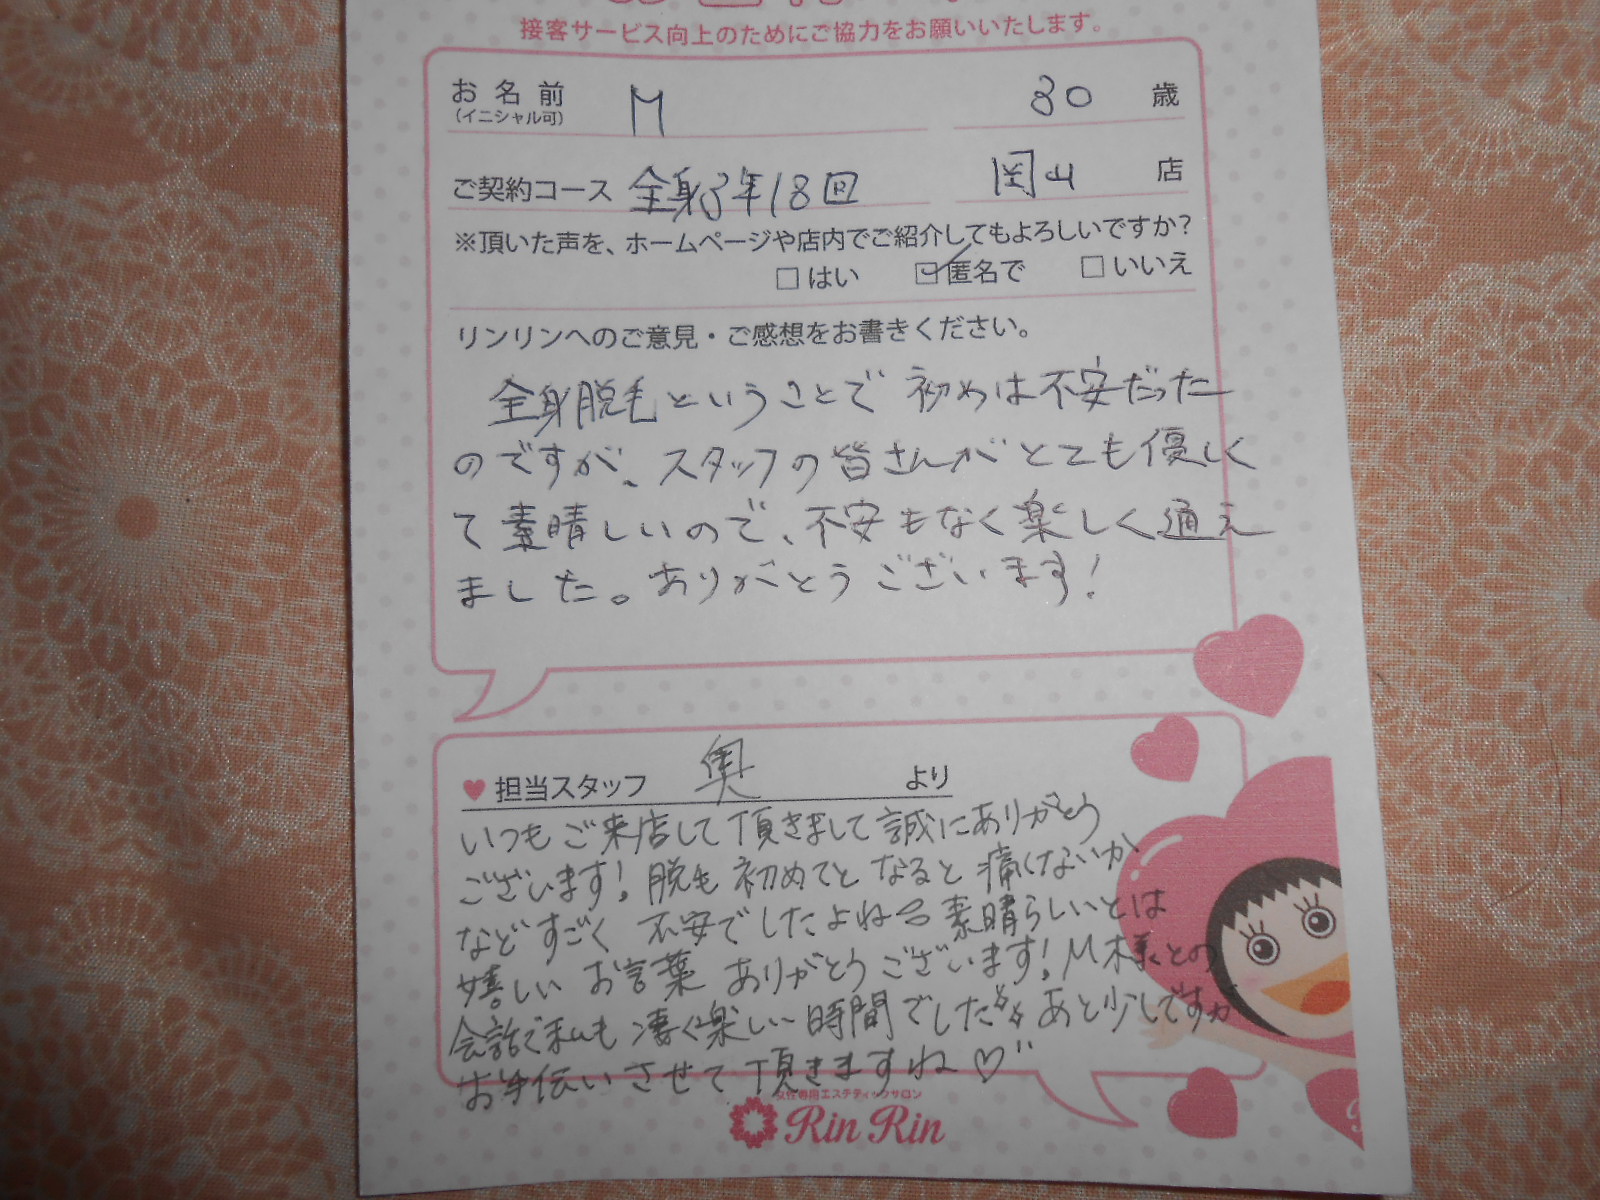 接客サービス向上のためにご協力をお願いいたします。
お名前 M 30 歳
(イニシャル可)
ご契約コース 全身3年18回 岡山 店
※頂いた声を、ホームページや店内でご紹介してもよろしいですか?
□はい ☑匿名で □いいえ
リンリンへのご意見・ご感想をお書きください。
全身脱毛ということで 初めは不安だった
のですが、スタッフの皆さんがとても優しく
て素晴しいので、不安もなく楽しく通え
ました。ありがとうございます!
♥担当スタッフ 奥 より
いつもご来店して頂きまして誠にありがとう
ございます!脱毛初めてとなると痛くないか
などすごく不安でしたよね 素晴らしいとは
嬉しいお言葉ありがとうございます!M様との
会話で私も凄く楽しい時間でした あと少しですが
お手伝いさせて頂きますね♡
女性専用エステティックサロン
Rin Rin